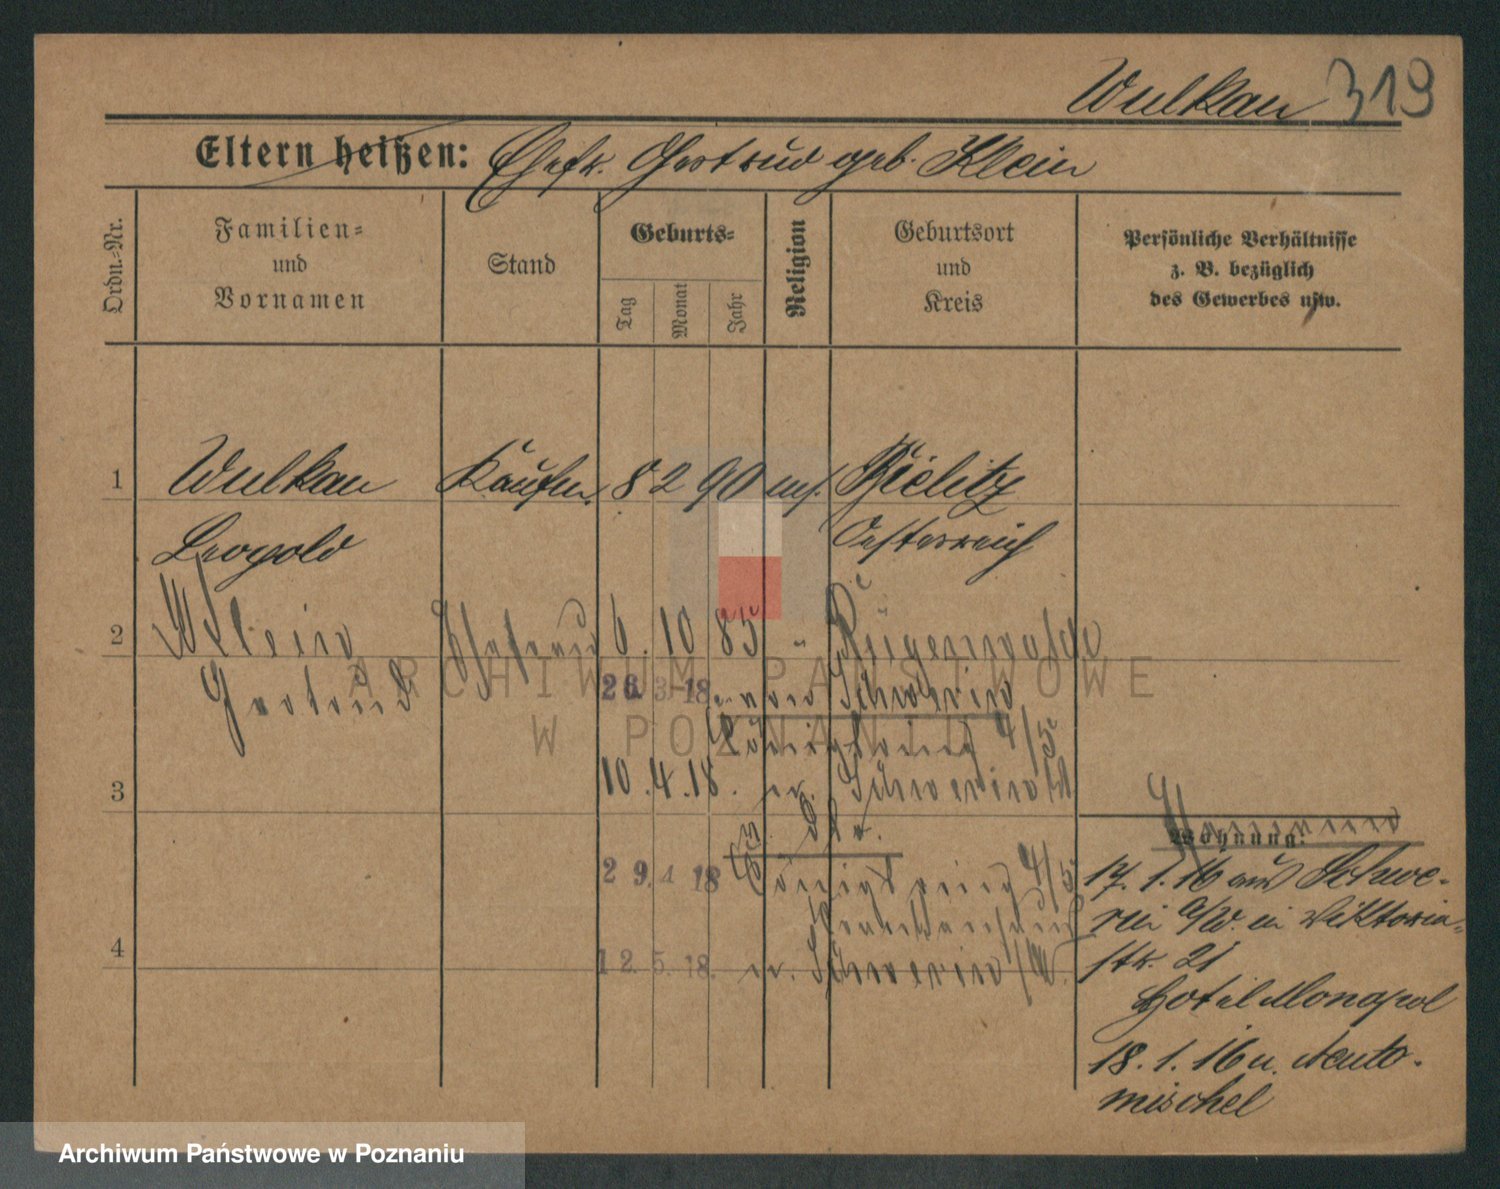 Wulkau 319
Eltern heißen: Ehefr. Gertrud geb. Klein
Ordn.-Nr.
Familien=
und
Vornamen
Stand
Geburts=
Tag
Monat
Jahr
Religion
Geburtsort
und
Kreis
Persönliche Verhältnisse
z. B. bezüglich
des Gewerbes usw.
1 Wulkau Kaufm. 8 2 90 ms. Bielitz
Leopold Oesterreich
2 Klein Ehefrau 6. 10 85 " Rügenwalde
Gertrud 26. 3. 18. Schwerin
Königsring 4/5
3 10. 4. 18. n. Schwerin
29. 4 18 Königsring 4/5
4 12. 5. 18. n. Schwerin a/W.
Wohnung:
17. 1. 16 aus Schwe-
rin a/W. in Viktoria-
str. 21
Hotel Monopol
18. 1. 16 n. Neuto-
mischel
ARCHIWUM PAŃSTWOWE
W POZNANIU
Archiwum Państwowe w Poznaniu